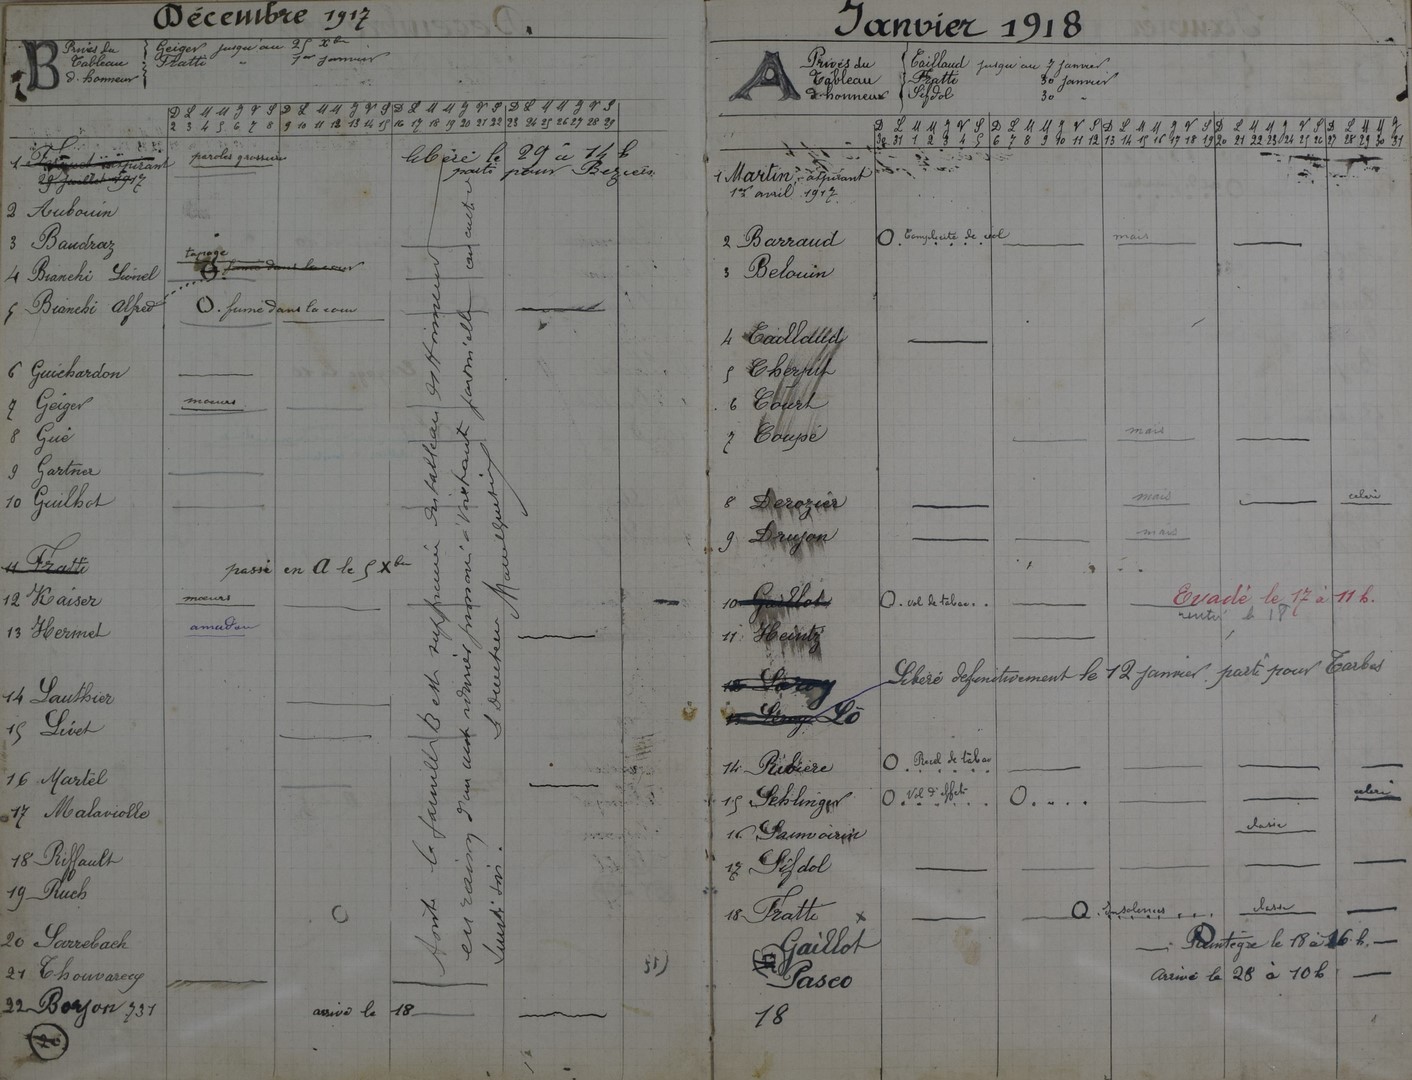 Décembre 1917
B Privés du Tableau d'honneur
Geiger jusqu'au 25 Xbre
Fratti " 1er Janvier
D L M M J V S D L M M J V S D L M M J V S D L M M J V S
2 3 4 5 6 7 8 9 10 11 12 13 14 15 16 17 18 19 20 21 22 23 24 25 26 27 28 29
1 aspirant paroles grossières libéré le 29 à 14 h
29 Juillet 1917 parti pour Beziers
2 Aubouin
3 Baudraz
tapage
4 Bianchi Lionel O. fumé dans la cour
5 Bianchi Alfred O. fumé dans la cour
6 Guichardon
7 Geiger moeurs
8 Gué
9 Gartner
10 Guilhot
11 Fratti passé en A le 5 Xbre
12 Kaiser moeurs
13 Hermet amadou
14 Lauthier
15 Livet
16 Martel
17 Malaviolle
18 Riffault
19 Ruch O
20 Sarrebach
21 Thouvarecq
22 Boyon 731 arrivé le 18
Toute la famille B est supprimée du tableau d'Honneur
en raison d'un mot
Le Directeur
Janvier 1918
A Privés du Tableau d'honneur
Caillaud jusqu'au 7 janvier
Fratti 30 janvier
Sifdol 30 "
D L M M J V S D L M M J V S D L M M J V S D L M M J V S D L M M J
30 31 1 2 3 4 5 6 7 8 9 10 11 12 13 14 15 16 17 18 19 20 21 22 23 24 25 26 27 28 29 30 31
1 Martin aspirant
1er avril 1917
2 Barraud O. Complicité de vol maïs
3 Belouin
4 Caillaud
5 Cherpit
6 Court
7 Coupé maïs
8 Derozier maïs celeri
9 Drujon maïs
10 Gaillot O. vol de tabac.. Evadé le 17 à 11 h.
rentré le 18
11 Heintz
12 Leroy Libéré définitivement le 12 janvier. parti pour Tarbes
Lô
14 Ribière O. Recel de tabac
15 Sehlinger O. Vol d'effets O.... celeri
16 Samvoisin classe
17 Sifdol
18 Fratti x O. Insolences .... classe
Gaillot Réintégré le 18 à 16 h.
Pasco Arrivé le 28 à 10 h
18